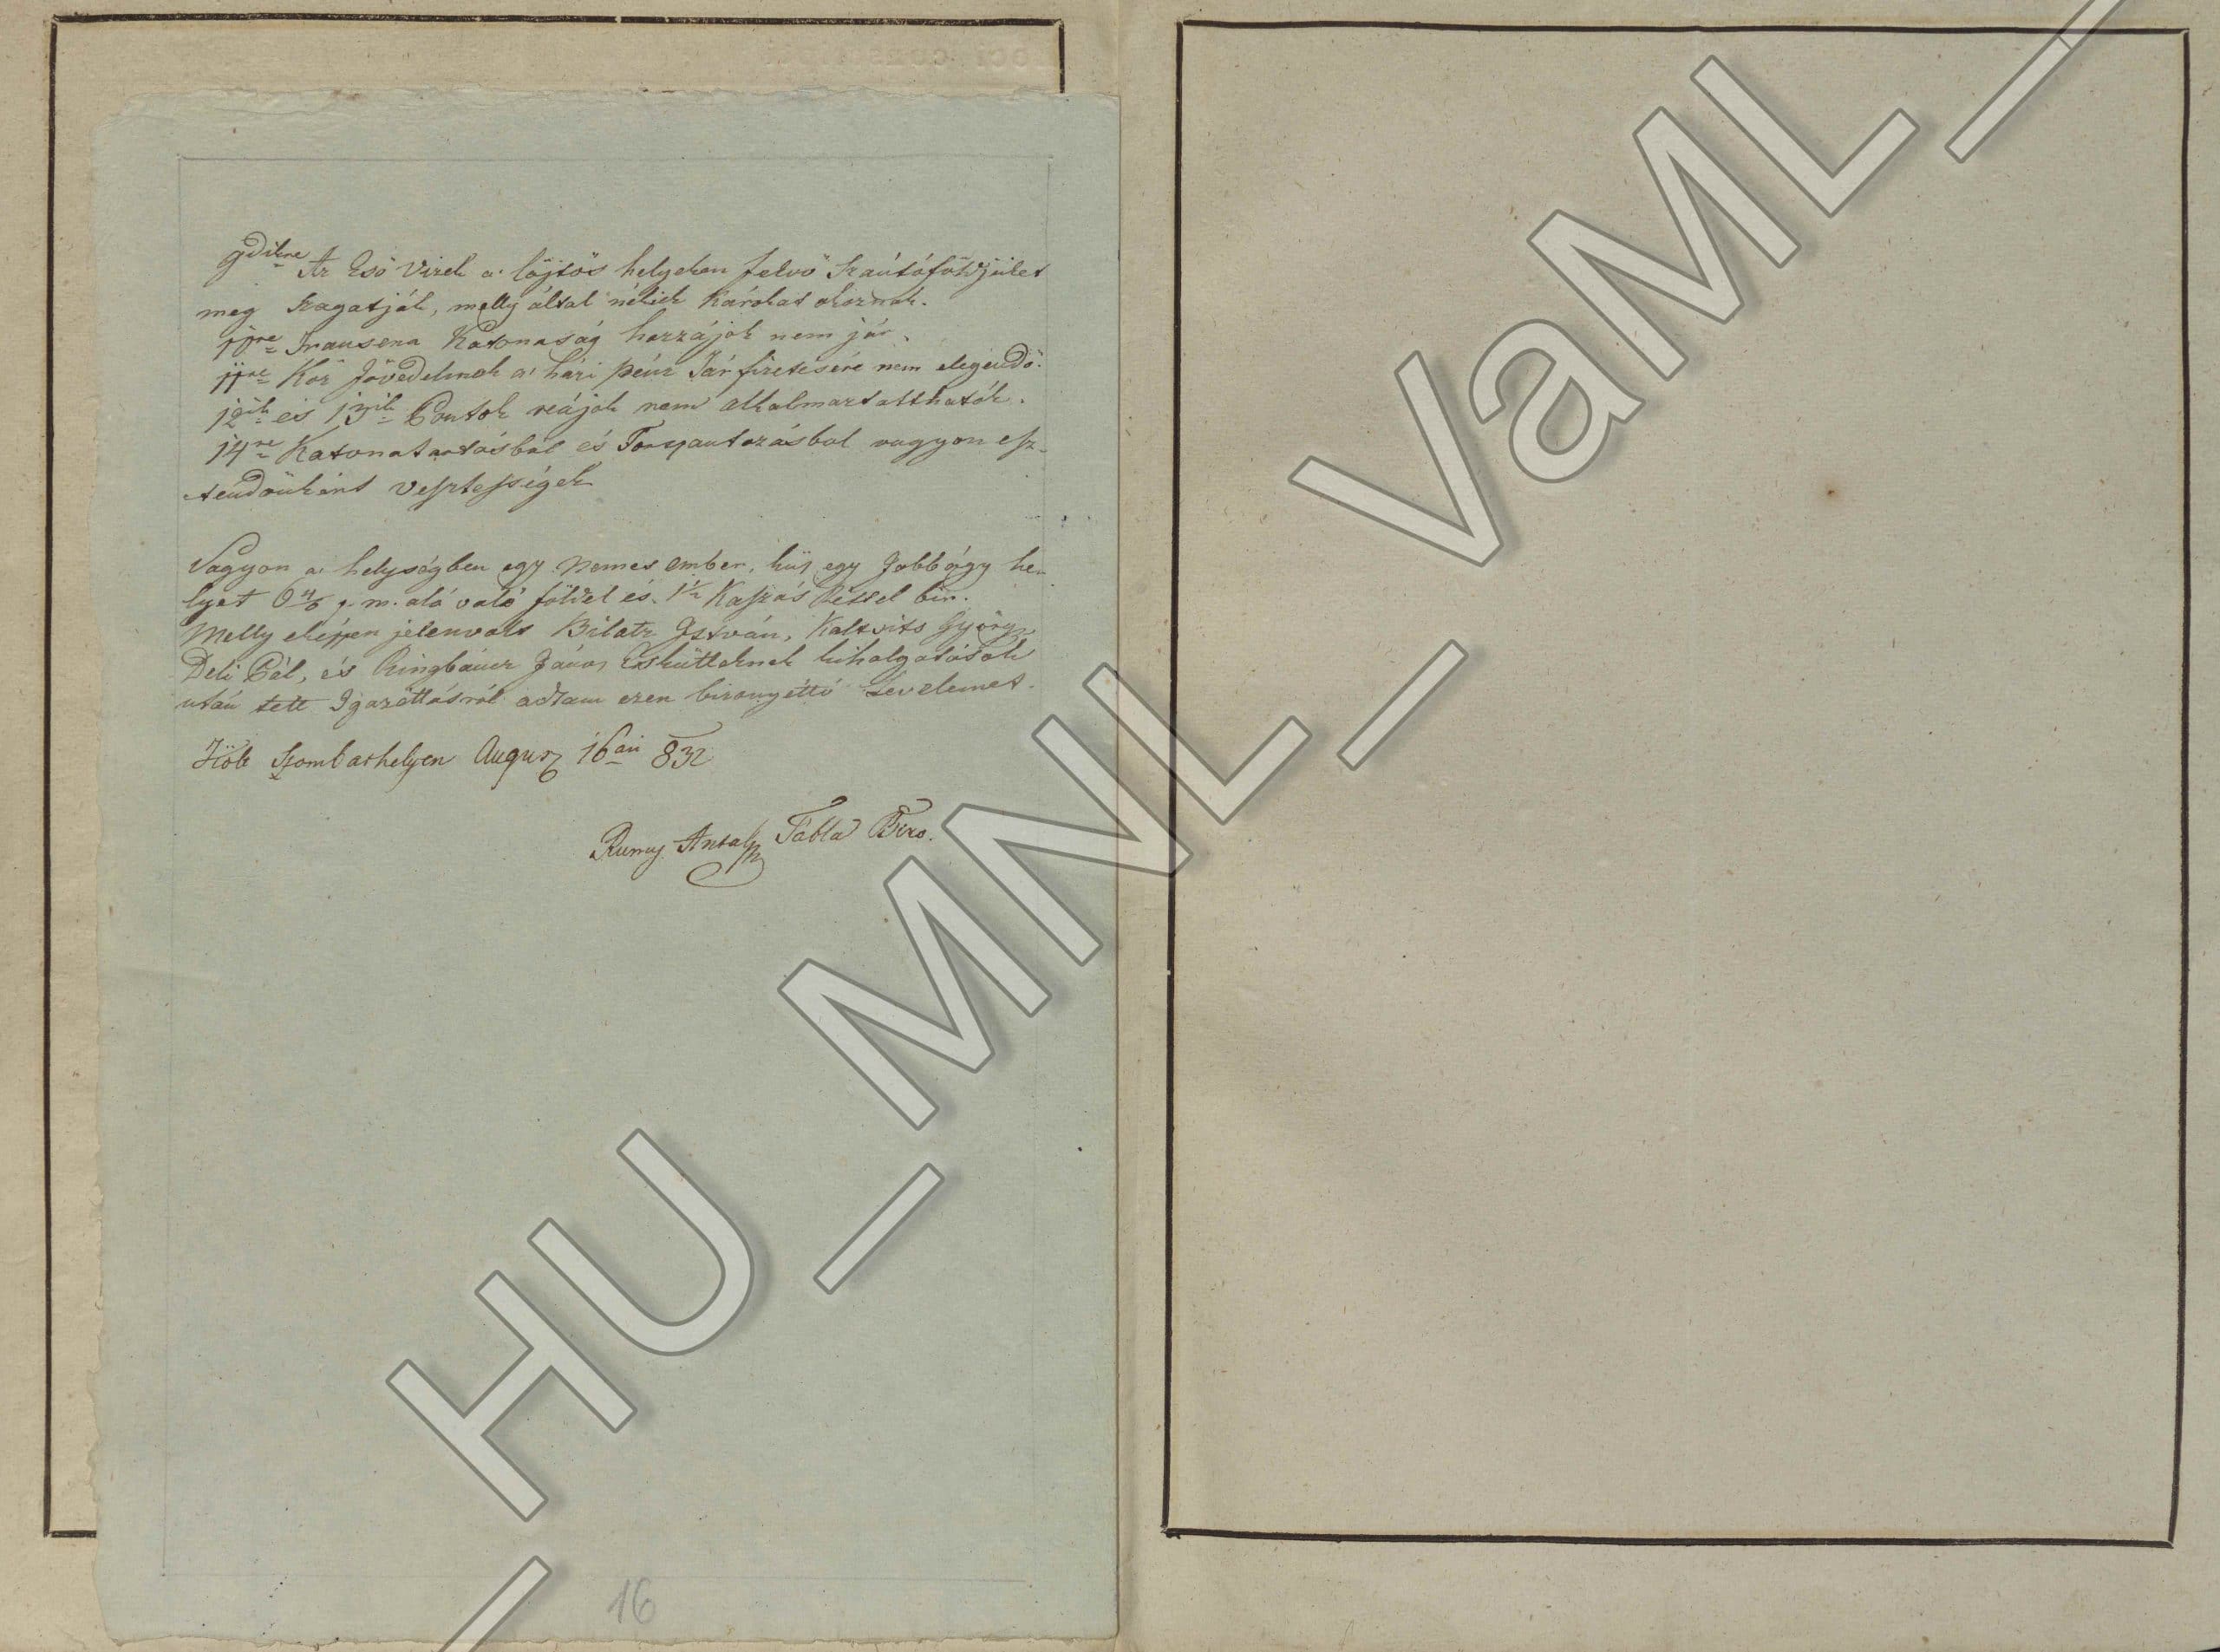 9dikre Az Eső vizek a' lőjtős helyeken fekvő Szántóföldjeiket
meg szagatják, melly által nékik károkat okoznak.
10re Transena Katonaság hozzájok nem jár.
11re Köz Jövedelmek a' házi pénz Tár fizetésére nem elegendő.
12ik és 13ik Pontok reájok nem alkalmaztatthatók.
14re Katonatartásbol és Forspantozásbul vagyon esz-
tendőnként vesztességek
Vagyon a' helységben egy Nemes ember, ki egy Jobbágy he-
lyet 6 4/6 p. m. alá való földel és 1 1/2 Kaszás Réttel bir.
Melly eképpen jelenvolt Bilatz István, Kaltsits György,
Deli Pál, és Ringbauer János Eskütteknek kihalgatások
után tett Igazittásról adtam ezen bizonyétó Levelemet.
Költ Szombathelyen August 16án 832
Rumy Antal Tábla Biro.
16
HU_MNL_VaML_